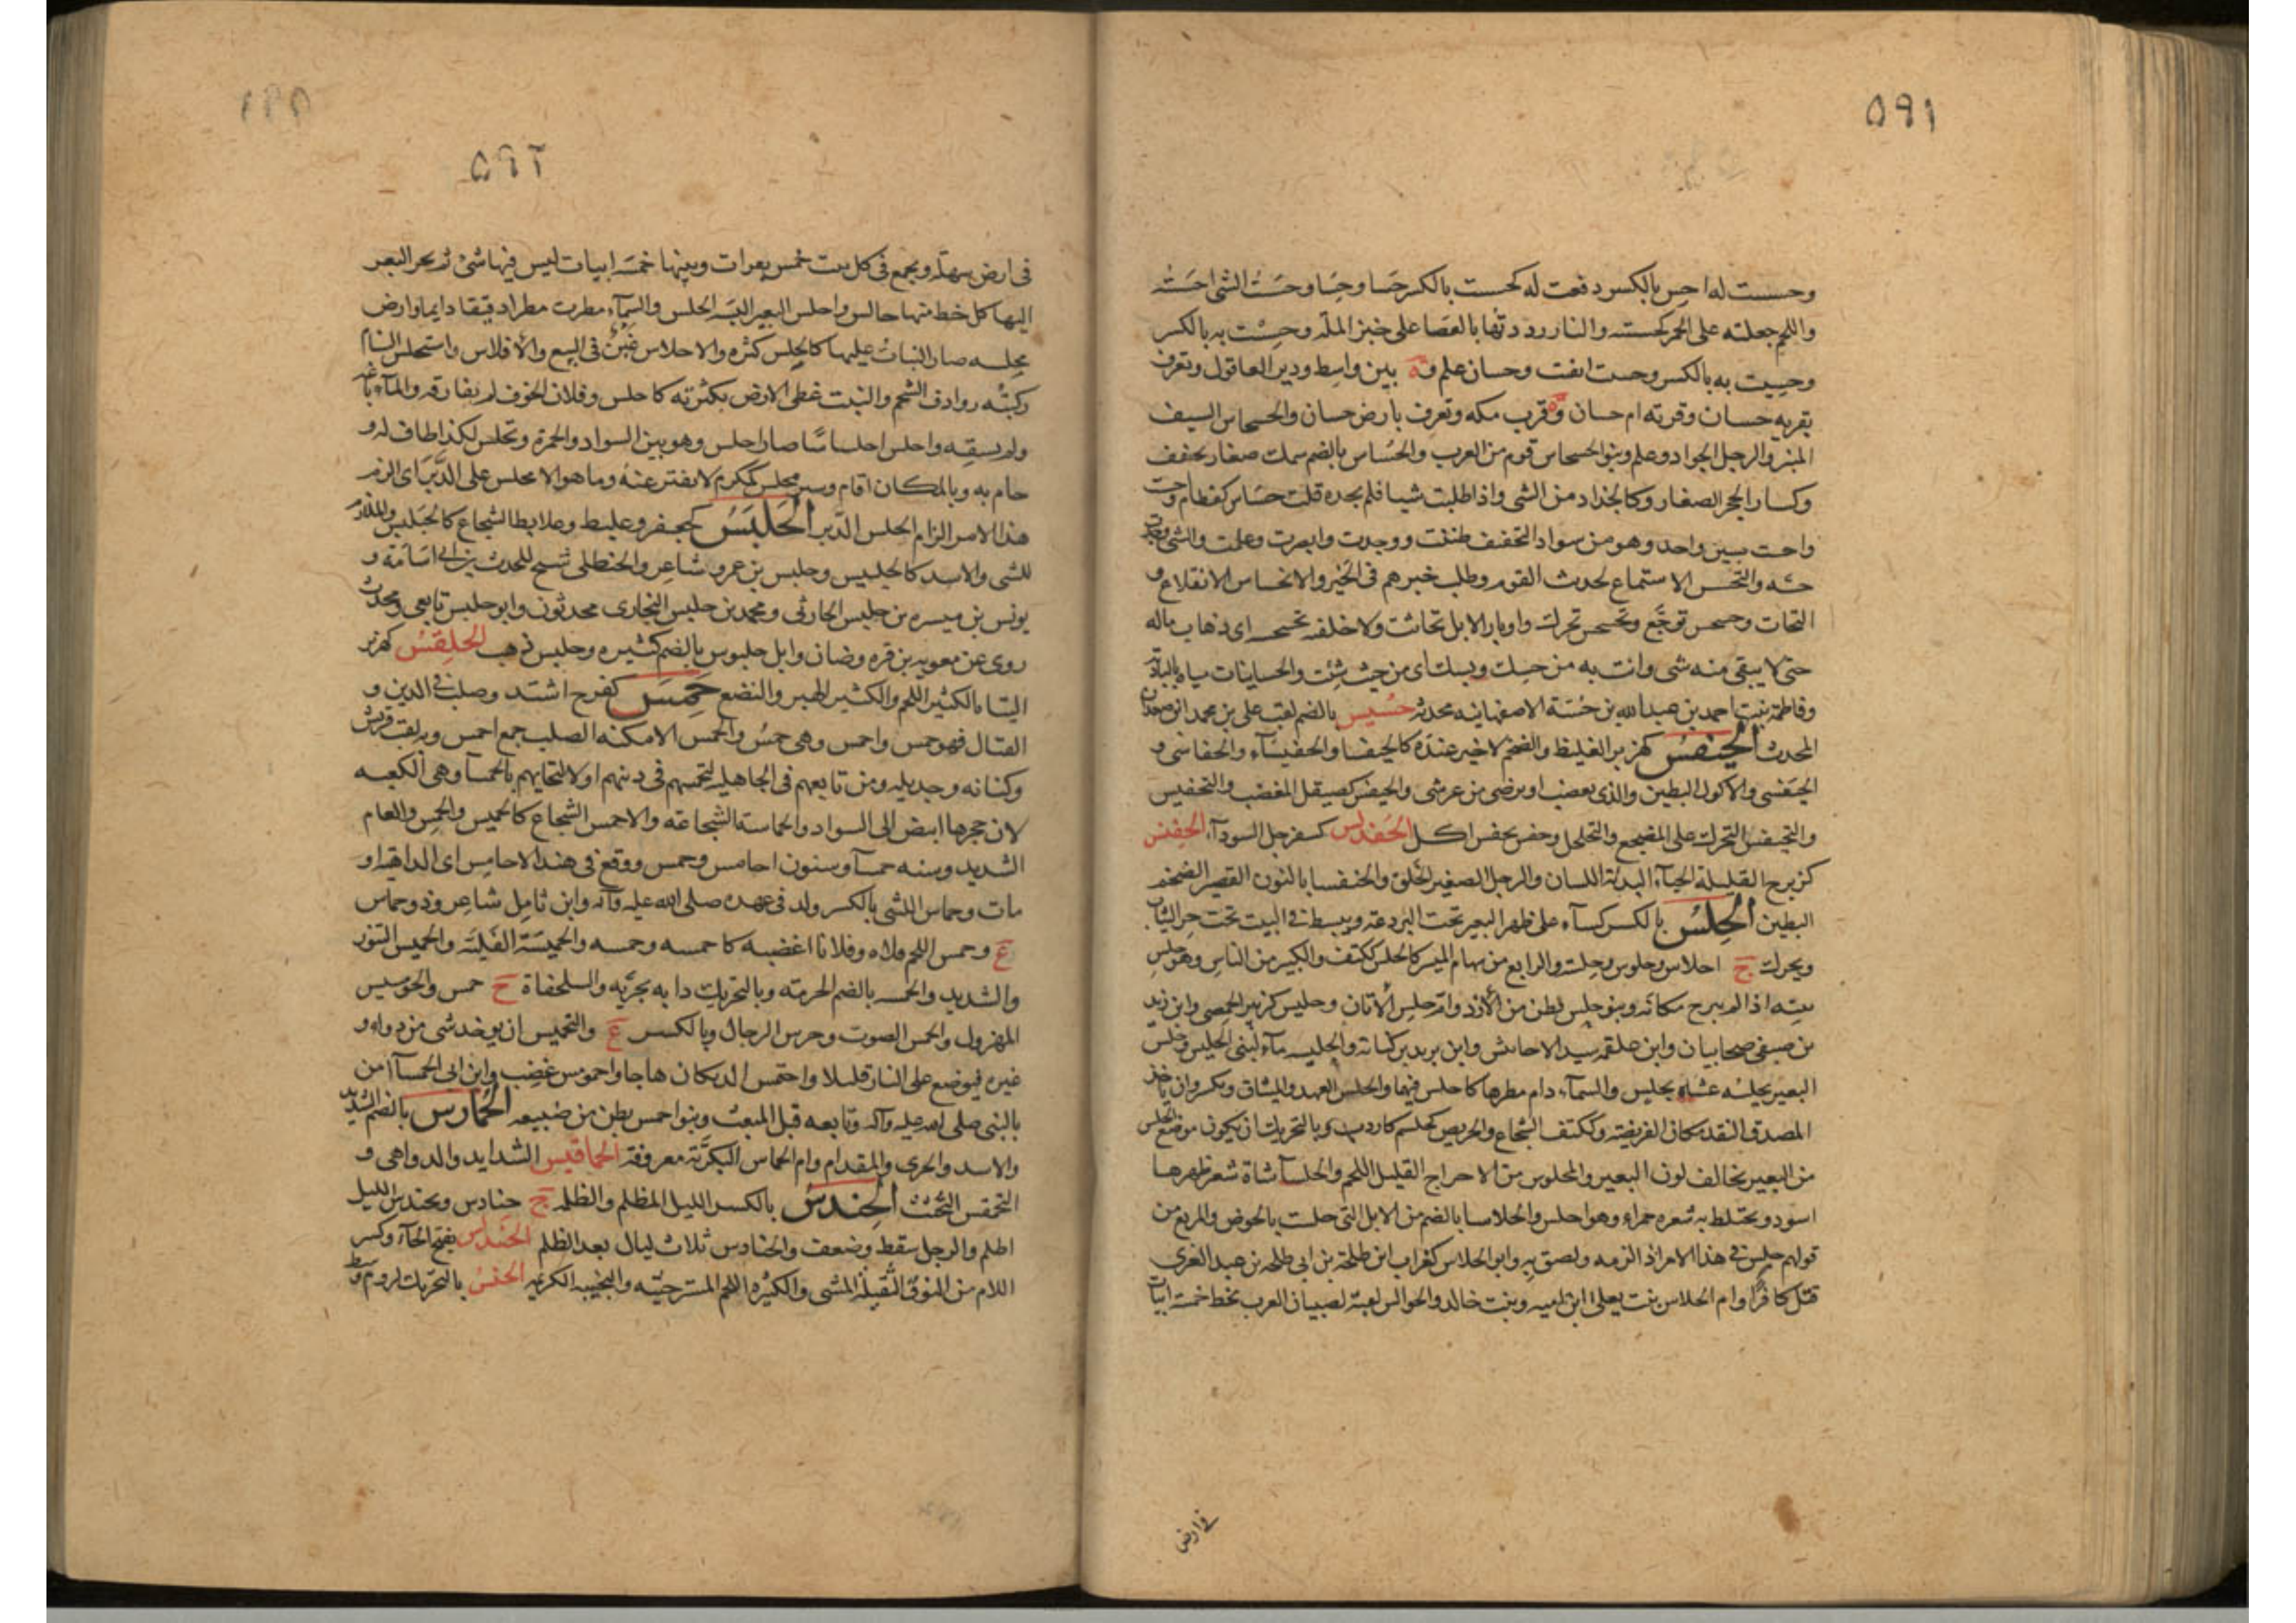 ٥٩١
وحسست له احس بالكسر دفعت له كحست بالكسر حسا وحسا وحست الشئ احسته
واللحم جعلته على الجمر كحسته والنار رددتها بالعصا على خبز الملة وحسست به بالكسر
وحسيت به بالكسر وحست ايقنت وحسان علم وة بين واسط ودير العاقول وتعرف
بقرية حسان وقرية ام حسان وة قرب مكه وتعرف بارض حسان والحسحاس السيف
المبير والرجل الجواد وعلم وبنو الحسحاس قوم من العرب والحساس بالضم سمك صغار يجفف
وكسار الحجر الصغار وكالجذاد من الشى واذا طلبت شيا فلم تجده قلت حساس كقطام وحست
واحست بسين واحد وهو من سواد التخفيف ظننت ووجدت وابصرت وعلمت والشى وجدت
حسه والتحسس الاستماع لحديث القوم وطلب خبرهم فى الخير والانحساس الانقلاع و
التحات وحسحس توجع وتحسحس تحرك واوبار الابل تحاتت ولاخلفنه بحسحسه اى ذهاب ماله
حتى لا يبقى منه شى وائت به من حسك وبسك اى من حيث شئت والحسانيات مياه بالبادية
وفاطمة بنت احمد بن عبد الله بن حسة الاصفهانيه محدثة حسيس بالضم لقب على بن محمد
المحدث الحيفس كهزبر الغليظ والضخم لا خير عنده كالحيفسا والحفيسآء والحفاسى و
الحيفسى والاكول البطين والذى يغضب او يرضى من غير شى والحيفس كصيقل المغضب والتحفيس
والتحيفس التحرك على المضجع والتحلحل وحفس يحفس اكل الحفدلس كسفرجل السودآء الحفنس
كزبرج القليلة الحيآء البذية اللسان والرجل الصغير الخلق والحنفسا بالنون القصير الضخم
البطين الحلس بالكسر كسآء على ظهر البعير تحت البردعة ويبسط فى البيت تحت حر الثياب
ويحرك ج احلاس وحلوس وحلسة والرابع من سهام الميسر كالحلس ككتف والكبير من الناس وهو حلس
بيته اذا لم يبرح مكانه وبنو حلس بطن من الازد وام حلس الاتان وحليس كزبير الحمصى وابن زيد
بن صيفى صحابيان وابن علقمه سيد الاحابيش وابن يزيد بن كنانة والحليسه مآء لبنى الحليس وحلس
البعير يحلسه غشاه بحلس والسمآء دام مطرها كاحلس فيها والحلس العهد والميثاق ويكسر وان ياخذ
المصدق النقد مكان الفريضة وككتف الشجاع والحريص كحلسم كاردب وبالتحريك ان يكون موضع الحلس
من البعير يخالف لون البعير والمحلوس من الاحراج القليل اللحم والحلسآ شاة شعر ظهرها
اسود ويختلط به شعره حمراء وهو احلس والحلاسا بالضم من الابل التى حلست بالحوض والمربع من
قولهم حلس فى هذا الامر اذا لزمه ولصق به وابو الحلاس كغراب ابن طلحة بن ابى طلحه بن عبد العزى
قتل كافرا وام الحلاس بنت يعلى ابن اميه وبنت خالد والحوالس لعبة لصبيان العرب تخط خمسة ابيات
فى ارض
٥٩٢
فى ارض سهلة ويجمع فى كل بيت خمس بعرات وبينها خمسه ابيات ليس فيها شئ ثم يجر البعر
اليها كل خط منها حالس واحلس البعير البسه الحلس والسمآء مطرت مطرا دقيقا دايما وارض
محلسه صار النبات عليها كالحلس كثره والاحلاس غبن فى البيع والافلاس واستحلس السنام
ركبته روادف الشحم والنبت غطى الارض بكثرته كاحلس وفلان الخوف لم يفارقه والمآء باعه
ولم يسقه واحلس احلساسا صار احلس وهو بين السواد والحمرة وتحلس لكذا طاف له و
حام به وبالمكان اقام وسير محلس كمكرم لا يفتر عنه وما هو الا محلس على الدبر اى الزم
هذا الامر الزام الحلس الدبر الحلبس كجعفر وعليط وعلابط الشجاع كالحبلبس والملازم
للشى والاسد كالحلبيس وحلبس بن عمرو شاعر والحنظلى شيخ للحدث بن ابى اسامة و
يونس بن ميسره بن حلبس الحارثى ومحمد بن حلبس البخارى محدثون وابو حلبس تابعى ومحدث
روى عن معويه بن قره وضان وابل حلبوس بالضم كثيره وحلبس ذهب الحلقس كهزبر
الشا بالكثير اللحم والكثير الهبر والبضع حمس كفرح اشتد وصلب فى الدين و
القتال فهو حمس واحمس وهى حمس والحمس الامكنه الصلبه جمع احمس وبه لقبت قريش
وكنانه وجديله ومن تابعهم فى الجاهلية لتحمسهم فى دينهم او لالتجايهم بالحمسا وهى الكعبه
لان حجرها ابيض الى السواد والحماسة الشجاعة والاحمس الشجاع كالحميس والحمس والعام
الشديد وسنه حمسآ وسنون احامس وحمس ووقع فى هند الاحامس اى الداهية او
مات وحماس الليثى بالكسر ولد فى عهده صلى الله عليه وآله وابن ثامل شاعر وذو حماس
ع وحمس اللحم قلاه وفلانا اغضبه كاحمسه وحمسه والحميسة القلية والحميس التنور
والشديد والحمسه بالضم الحرمة وبالتحريك دابه بحريه والسلحفاة ج حمس والحوميس
المهزول والحمس الصوت وجرس الرجال وبالكسر ع والتحميس ان يوخذ شى من دواء و
غيره فيوضع على النار قليلا واحتمس الديكان هاجا واحمومس غضب وابن ابى الحمسآ امن
بالنبى صلى الله عليه وآله وتابعه قبل المبعث وبنو احمس بطن من ضبيعه الحمارس بالضم الشديد
والاسد والجرى والمقدام وام الحمارس البكرية معروفة الحماقيس الشدايد والدواهى و
التحمقس التخبث الحندس بالكسر الليل المظلم والظلمه ج حنادس وتحندس الليل
اظلم والرجل سقط وضعف والحنادس ثلاث ليال بعد الظلم الحندلس بفتح الحآء وكسر
اللام من النوق الثقيلة المشى والكثيره اللحم المسترخيته والنجيبه الكريمه الحنس بالتحريك لزوم وسط